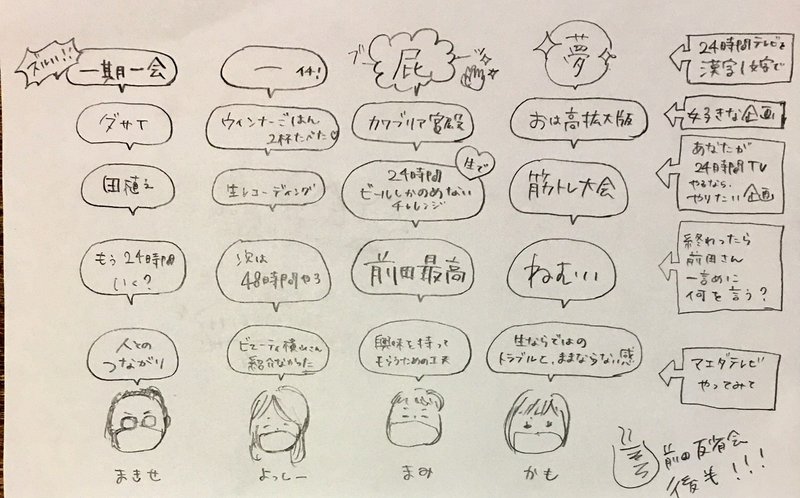 ズルい!!
一期一会
一
イチ!
ブッ
屁
夢
24時間テレビを
漢字1文字で
ダサT
ウィンナーごはん
2杯たべた
カワブリア宮殿
おは高拡大版
好きな企画
田植え
生レコーディング
24時間
ビールしかのめない
チャレンジ
生で
筋トレ大会
あなたが
24時間TV
やるなら、
やりたい企画
もう24時間
いく?
次は
48時間やろ
前田最高
ねむいい
終わったら
前田さん
一言めに
何を言う?
人との
つながり
ビューティ横山さん
紹介ながった
興味を持って
もらうための工夫
生ならではの
トラブルと、ままならない感
マエダテレビ
やってみて
まきせ
よっしー
まみ
かも
前田反省会
後も!!!